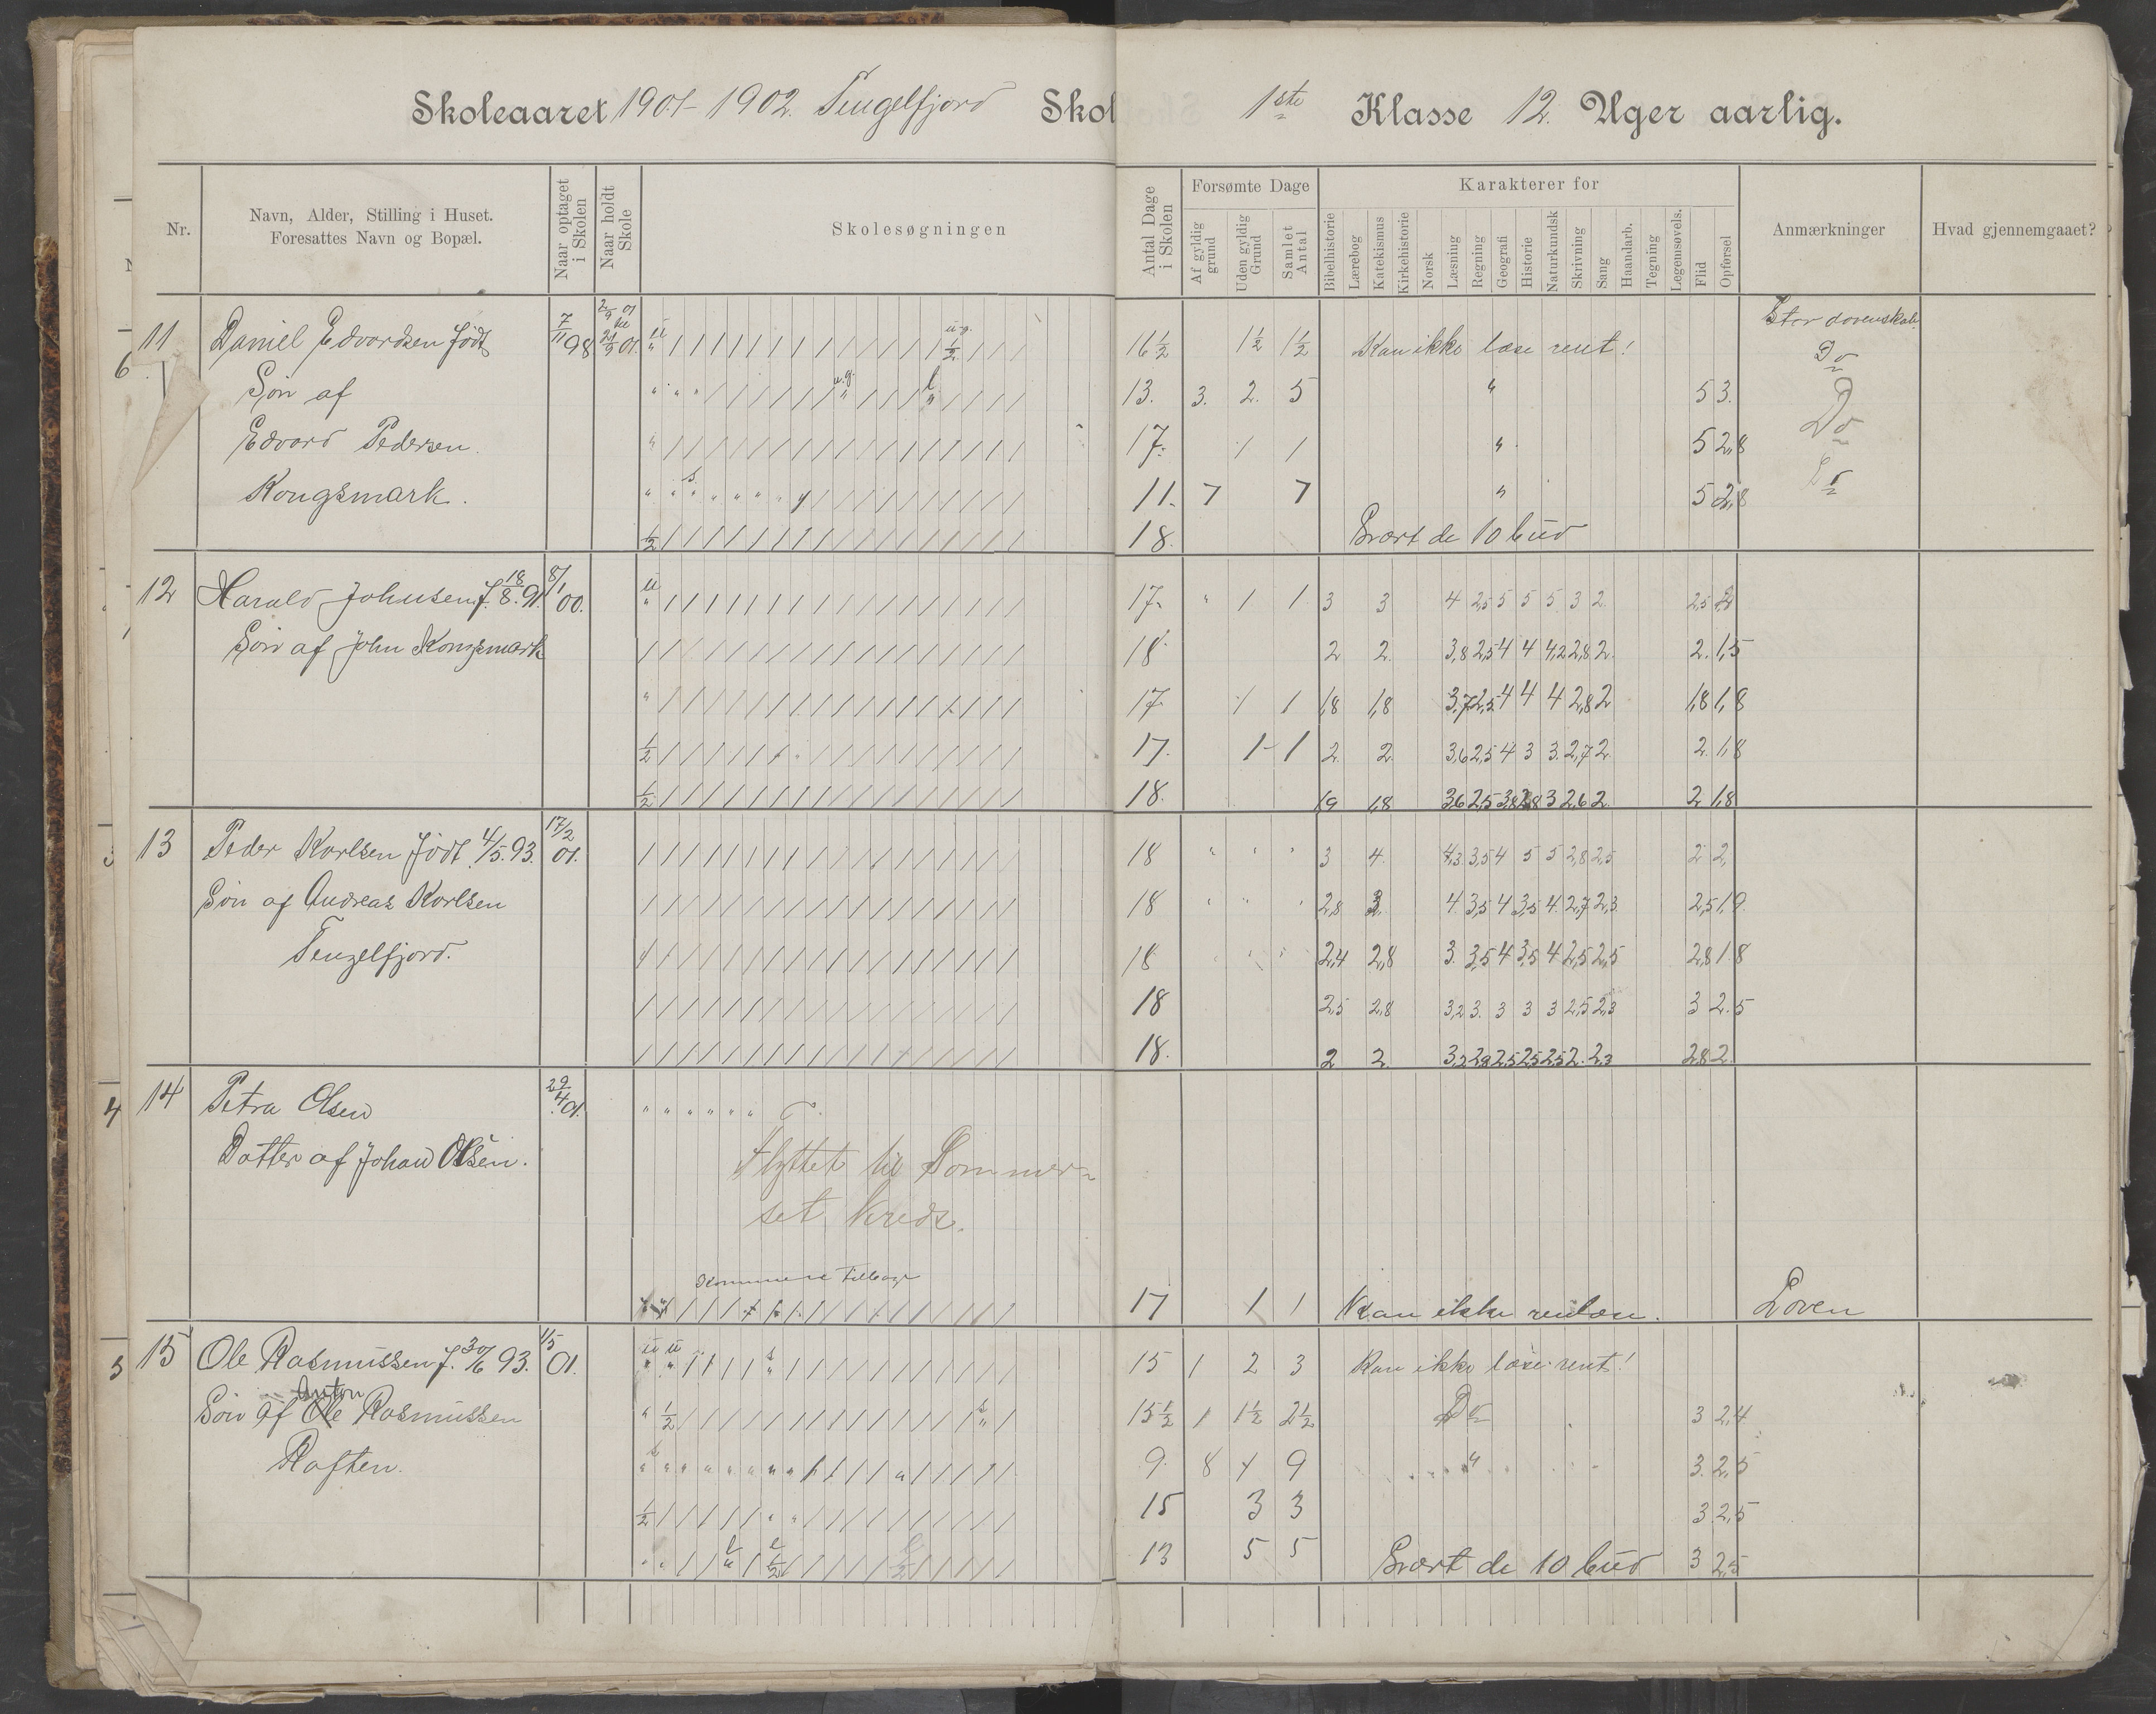 Skoleaaret 1901-1902. Tengelfjord Skol 1ste Klasse 12. Uger aarlig.
Nr. Navn, Alder, Stilling i Huset. Foresattes Navn og Bopæl. Naar optaget i Skolen Naar holdt Skole Skolesøgningen Antal Dage i Skolen Forsømte Dage Karakterer for Anmærkninger Hvad gjennemgaaet?
Af gyldig grund Uden gyldig Grund Samlet Antal Bibelhistorie Lærebog Katekismus Kirkehistorie Norsk Læsning Regning Geografi Historie Naturkundsk Skrivning Sang Haandarb. Tegning Legemsøvels. Flid Opførsel
11 Daniel Edvardsen født 7/11 98 16½ 1½ 1½ Kan ikke læse rent! Stor dovenskab Do
Søn af 13. 3. 2. 5 " 5 3. Do
Edvard Pedersen. 17. 1 1 " 5 2,8
Kongsmark. 11. 7 7 " 5 2,8 Do
½ 18. Svært de 10 bud
12 Harald Johnsen f. 18/8. 91. 8/1 00. 17. " 1 1 3 3 4 2,5 5 5 5 3 2 2,5 2
Søn af John Kongsmark 18. 2 2. 3,8 2,5 4 4 4,2 2,8 2. 2. 1,5
17 1 1 1,8 1,8 3,7 2,5 4 4 4 2,8 2 1,8 1,8
½ 17. 1 1 2. 2. 3,6 2,5 4 3 3. 2,7 2. 2. 1,8
½ 18. 1,9 1,8 3,6 2,5 3,8 2,8 3 2,6 2. 2 1,8
13 Peder Karlsen født 4/5. 93. 17/2 01. 18 " " " 3 4. 4,3 3,5 4 5 5 2,8 2,5 2 2,
Søn af Andreas Karlsen 18 " " " 2,8 3. 4. 3,5 4 3,5 4. 2,7 2,3 2,5 1,9.
Tengelfjord. 18 2,4 2,8 3. 3,5 4 3,5 4 2,5 2,5 2,8 1,8
18 2,5 2,8 3,2 3. 3 3 3 2,5 2,3 3 2,5
18. 2 2. 3,2 2,8 2,5 2,5 2,5 2. 2,3 2,8 2.
14 Petra Olsen 29/4 01.
Datter af Johan Olsen.
Flyttet til Sommer-
set kreds.
Kommen tilbage
17 1 1 Kan ikke renlæse. Doven
15 Ole Rasmussen f. 30/6 93. 1/5 01. 15 1 2 3 Kan ikke læse rent!
Anton
Søn af Ole Rasmussen 15½ 1 1½ 2½ Do 3 2,4
Raften. 9. 8 1 9 " 3. 2,5
½ 15 3 3 3 2,5
13 5 5 Svært de 10 bud 3 2,5